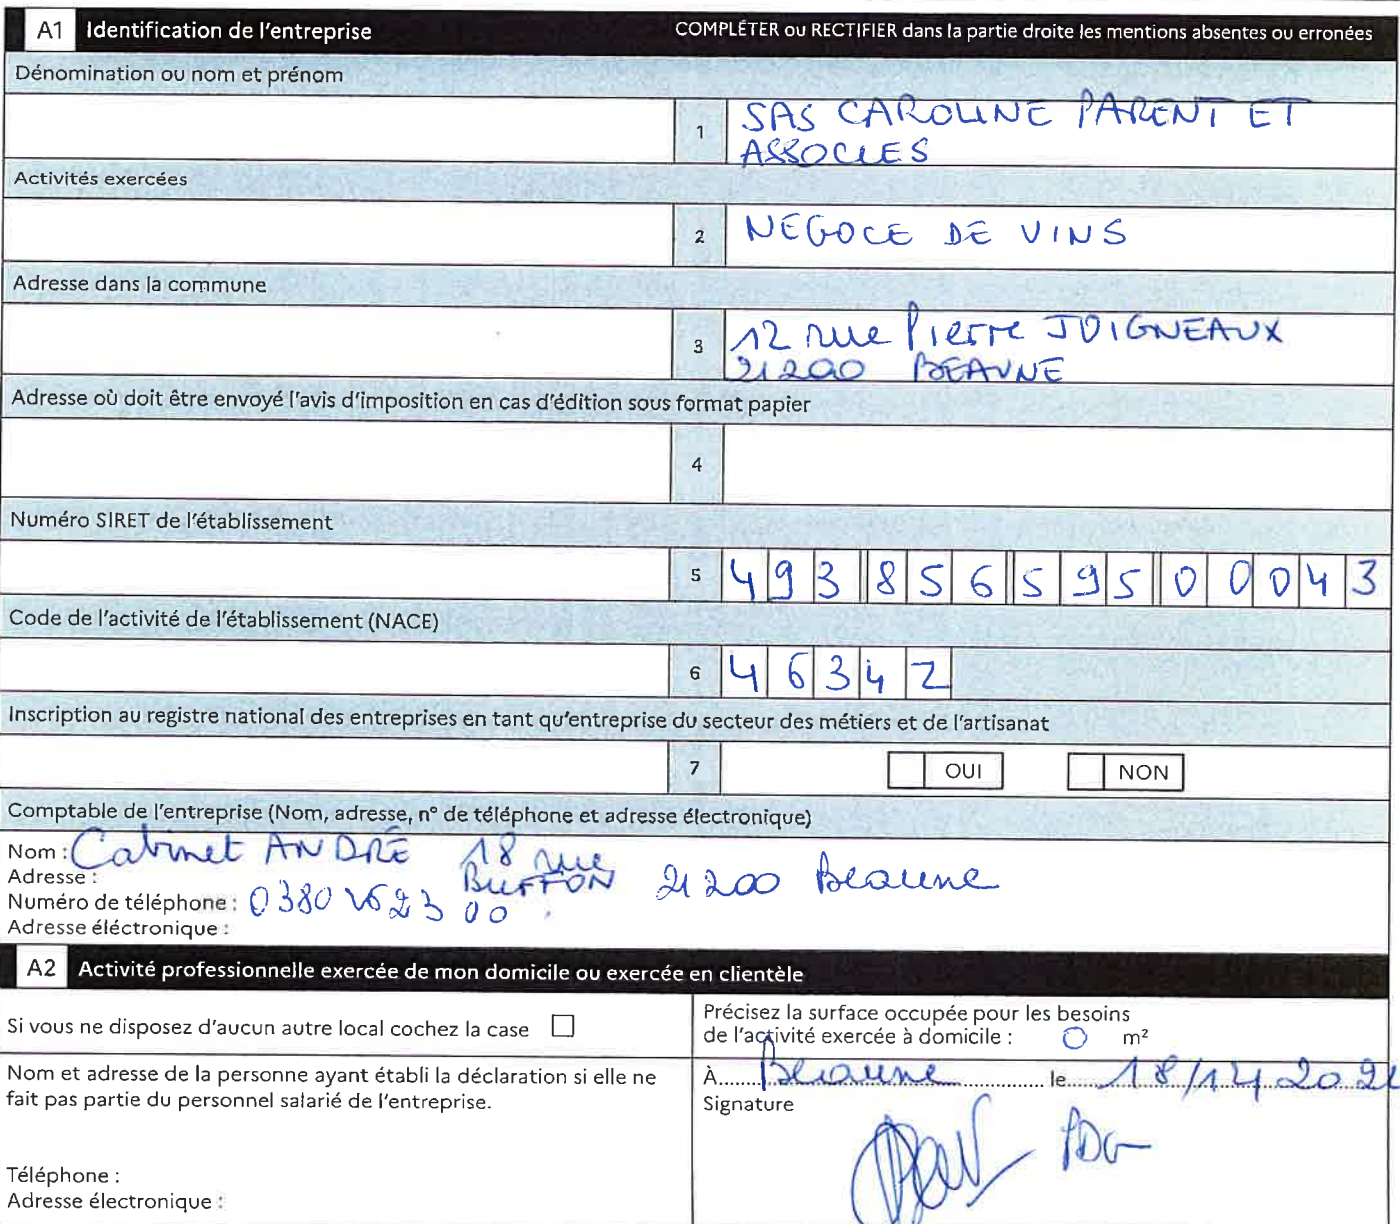 A1 Identification de l'entreprise COMPLÉTER ou RECTIFIER dans la partie droite les mentions absentes ou erronées
Dénomination ou nom et prénom
1 SAS CAROLINE PARENT ET
ASSOCIES
Activités exercées
2 NEGOCE DE VINS
Adresse dans la commune
3 12 rue Pierre JOIGNEAUX
21200 BEAUNE
Adresse où doit être envoyé l'avis d'imposition en cas d'édition sous format papier
4
Numéro SIRET de l'établissement
5 493 856 595 00043
Code de l'activité de l'établissement (NACE)
6 4634Z
Inscription au registre national des entreprises en tant qu'entreprise du secteur des métiers et de l'artisanat
7 OUI NON
Comptable de l'entreprise (Nom, adresse, n° de téléphone et adresse électronique)
Nom : Cabinet ANDRÉ 18 rue
Adresse : BUFFON 21200 Beaune
Numéro de téléphone : 0380 262300
Adresse éléctronique :
A2 Activité professionnelle exercée de mon domicile ou exercée en clientèle
Si vous ne disposez d'aucun autre local cochez la case
Précisez la surface occupée pour les besoins
de l'activité exercée à domicile : 0 m²
Nom et adresse de la personne ayant établi la déclaration si elle ne
fait pas partie du personnel salarié de l'entreprise.
Téléphone :
Adresse électronique :
À Beaune le
Signature
PDG